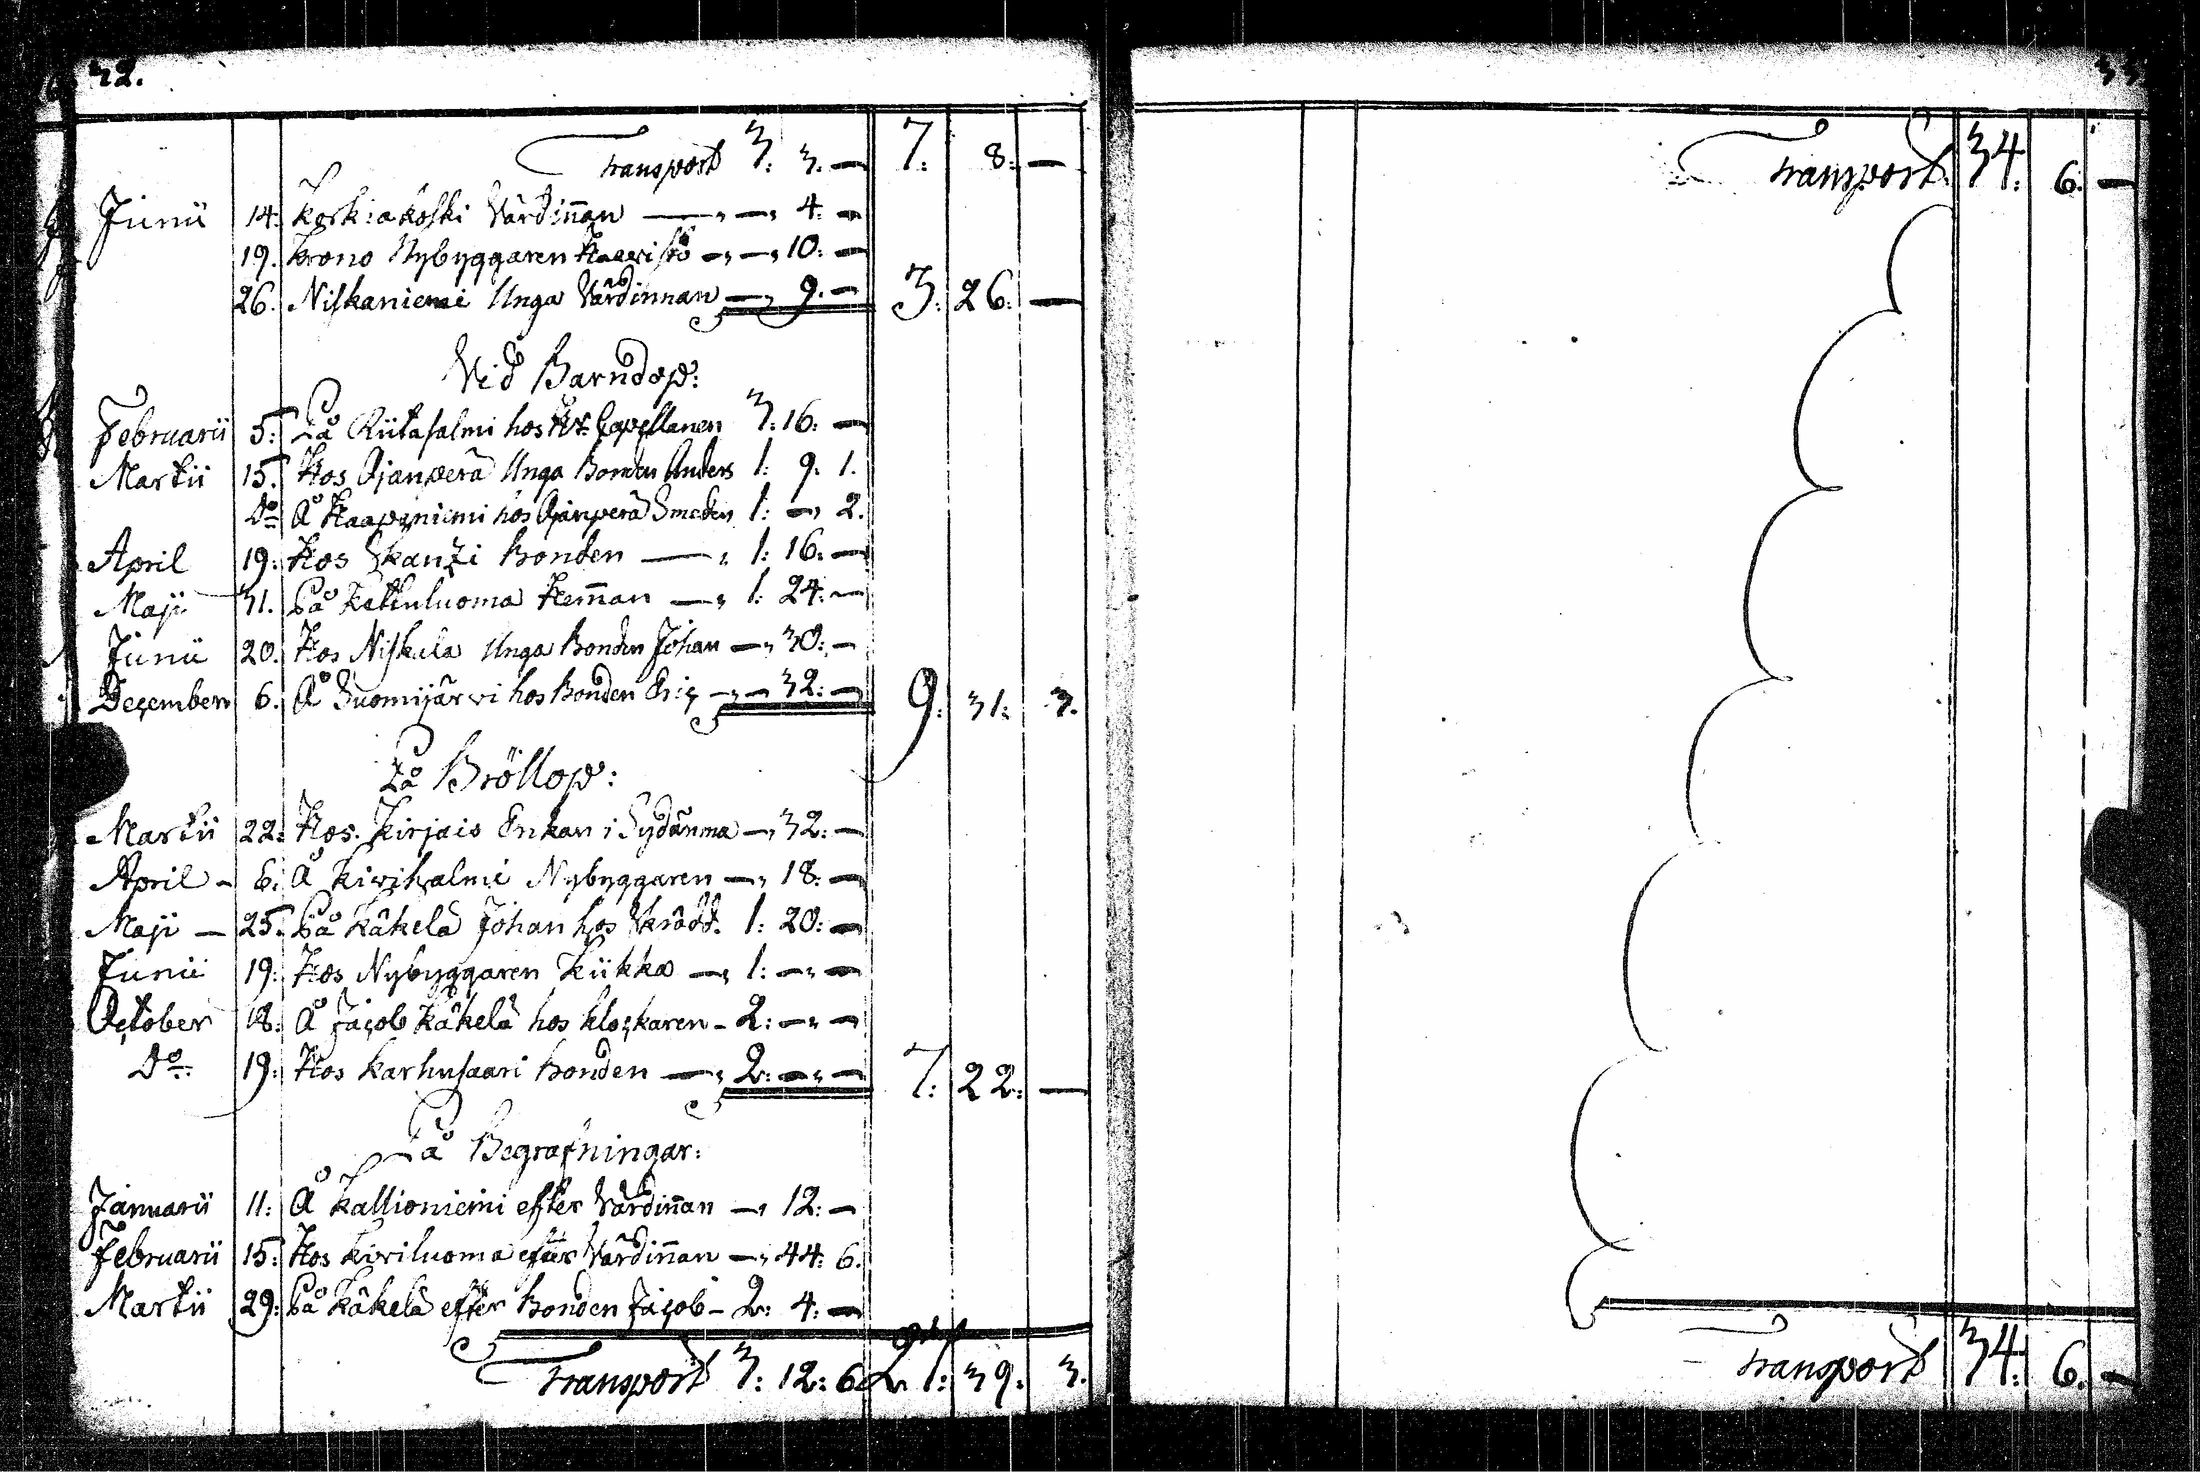 32.
Transport 3: 3. — 7: 8: —
Junii 14: Korkiakoski Wärdiñan — „ — „ 4: —
19. Krono Nybyggaren Haavisto — „ — „ 10: —
26. Niskaniemi Unga Wärdinnan — „ 9. — 3: 26: —
Vid Barndop:
Februarii 5: På Riitasalmi hos Hr. Capellanen 3: 16: —
Martii 15. Hos Ojanperä Unga Bonden Anders 1: 9. 1.
Do Å Haapaniemi hos Ojanperä Smeden 1: — „ 2.
April 19: Hos Skanzi Bonden — „ 1: 16: —
Maji 31. På Kettuluoma Hem̃an — „ 1: 24: —
Junii 20. Hos Niskula Unga Bonden Johan — „ 30: —
December 6. Å Suomijärvi hos Bonden Eric — „ — 32: — 9: 31: 3.
På Bröllop:
Martii 22: Hos Kirjais Enkan i Sydänma — „ 32: —
April — 6: Å Nybyggaren — „ 18: —
Maji — 25. På Käkelä Johan hos Skrädd. 1: 20: —
Junii 19: Hos Nybyggaren Kiikka — „ 1: — „ —
October 18: Å Jacob Käkelä hos Klockaren — 2: — „ —
Do 19: Hos Karhusaari Bonden — „ 2: — „ — 7: 22: —
På Begrafningar:
Januarii 11: Å Kallioniemi efter Wärdiñan — „ 12: —
Februarii 15: Hos Kiviluoma efter Wärdiñan — „ 44: 6.
Martii 29: På Käkelä efter Bonden Jacob — 2: 4: —
Transport 3: 12: 6 1: 39: 3.
33
Transport 34: 6: —
Transport 34: 6. —